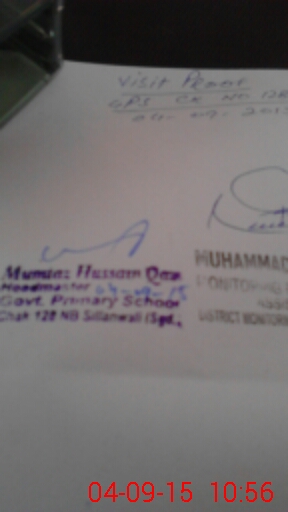 Visit Proof
GPS CK NO 128
04-09-2015
Mumtaz Hussain Qaz
Headmaster 04-09-15
Govt. Primary School
Chak 128 NB Sillanwali (Sgd.,
MUHAMMAD
MONITORING
DISTRICT MONITORIN
04-09-15 10:56